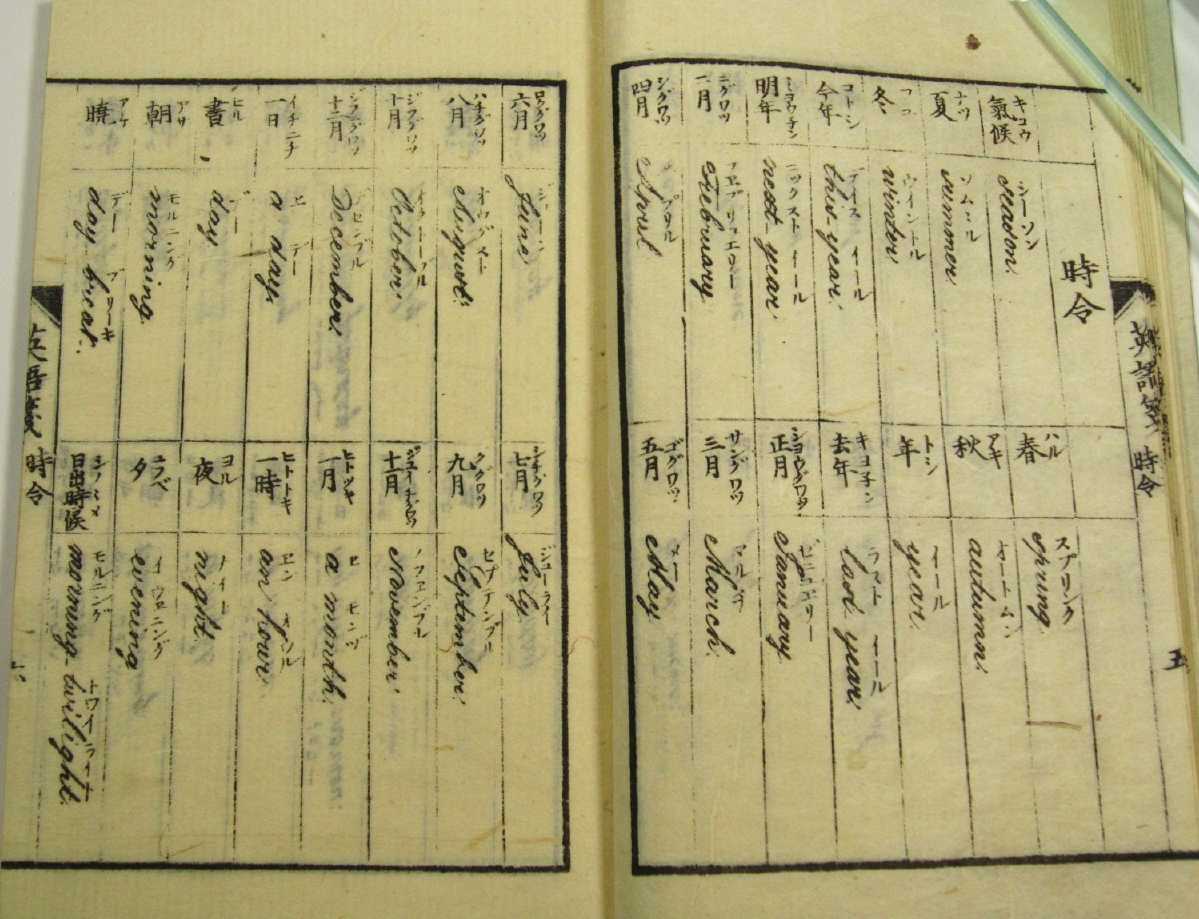 時令
キコウ
氣候
シーソン
season.
ハル
春
スプリンク
spring.
ナツ
夏
ソムミル
summer.
アキ
秋
オートムン
autumn.
冬
ウイントル
winter.
トシ
年
イール
year.
コトシ
今年
ディス イール
this year.
キヨチン
去年
ラスト イール
last year.
ミヨウチン
明年
ニックスト イール
next year.
シヨウグワツ
正月
ゼニユエリー
January.
ニグワツ
二月
February.
サングワツ
三月
マルチ
March.
シグワツ
四月
April
ゴグワツ
五月
メー
May.
英語箋 時令
五
ロクグワツ
六月
June.
シチグワツ
七月
ジューライ
July.
ハチグワツ
八月
オウグスト
August.
クグワツ
九月
セプテンブル
September.
ジフグワツ
十月
October.
十一月
ノフエンブル
November.
十二月
December.
ヒトツキ
一月
a month.
イチニチ
一日
エ デー
a day.
ヒトトキ
一時
an hour.
ヒル
晝
デー
day.
ヨル
夜
ナイト
night.
アサ
朝
モルニンク
morning.
夕
evening.
アケ
曉
デー ブリーキ
day breat.
日出時候
モルニング トワイライト
morning twilight.
英語箋 時令
六